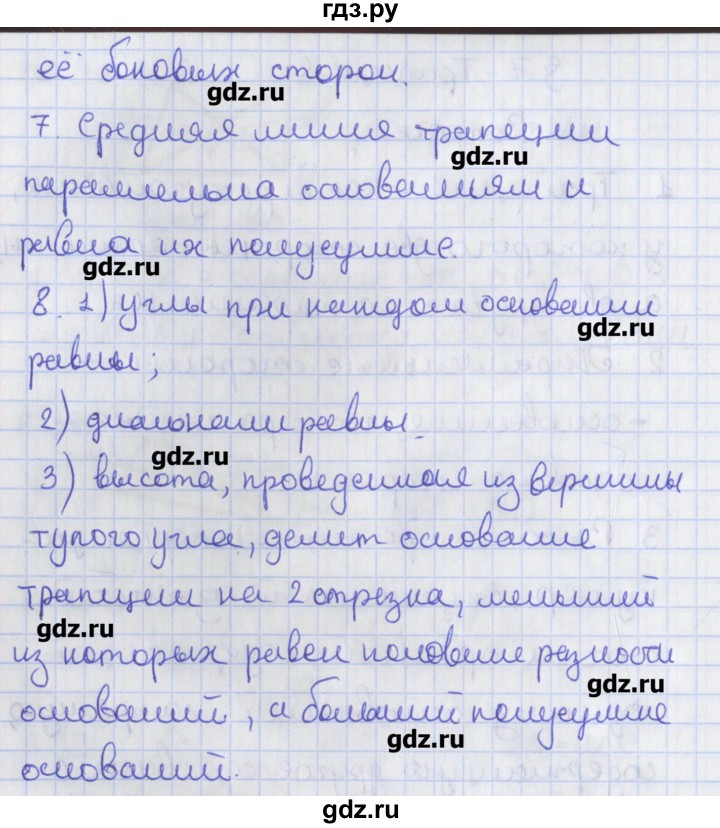 гдз.ру
её боковых сторон.
gdz.ru
7. Средняя линия трапеции
gdz.ru
параллельна основаниям и
равна их полусумме.
gdz.ru
8. 1) углы при каждом основании
gdz.ru
равны;
2) диагонали равны.
gdz.ru
3) высота, проведенная из вершины
тупого угла, делит основание
трапеции на 2 отрезка, меньший
gdz.ru
из которых равен половине разности
gdz.ru
оснований, а больший полусумме
gdz.ru
оснований.
gdz.ru